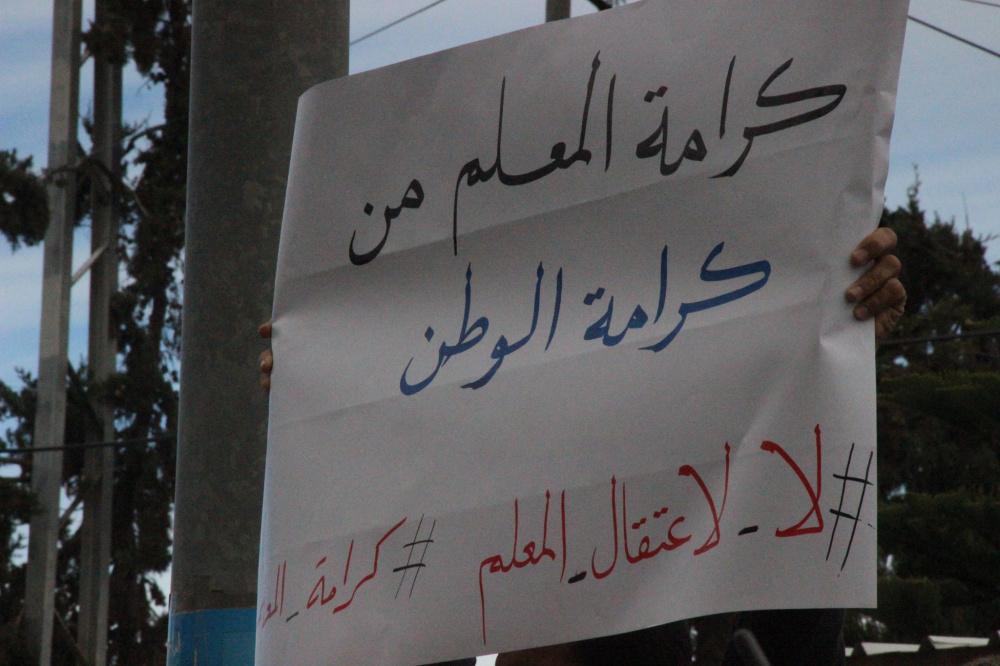 كرامة المعلم من
كرامة الوطن
#لا_لاعتقال_المعلم #كرامة